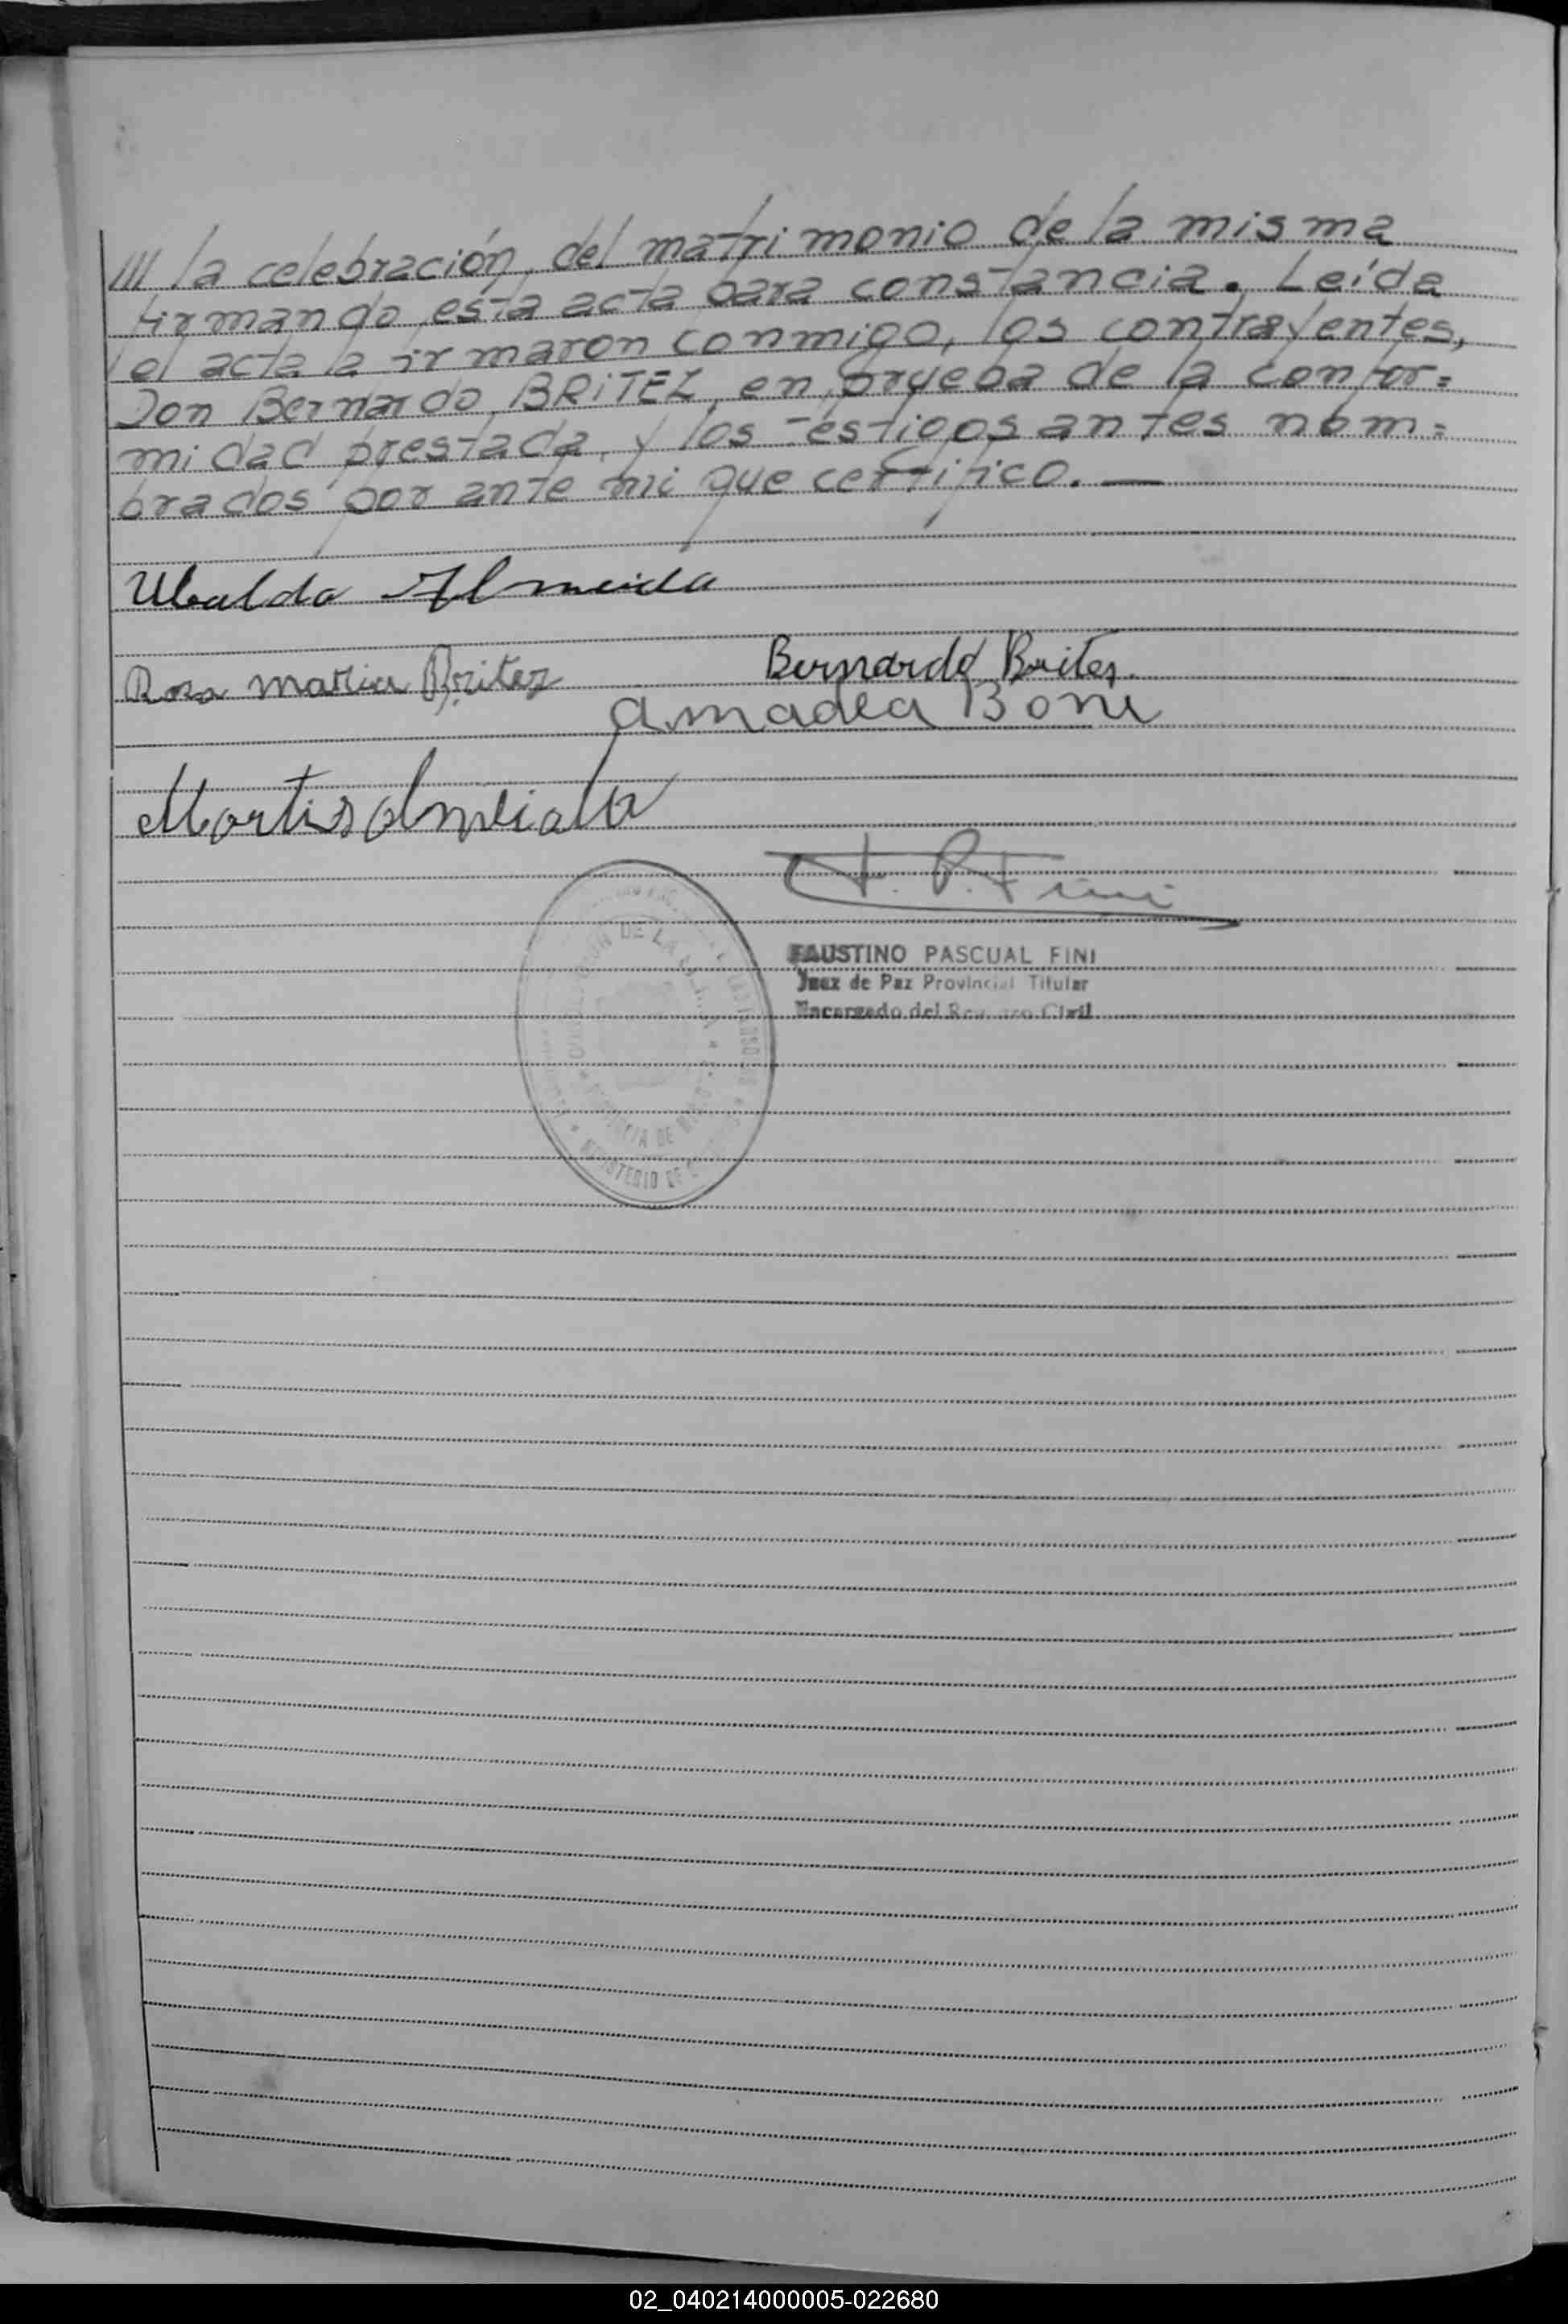 /// la celebración, del matrimonio de la misma
firmando esta acta para constancia. Leída
el acta la firmaron conmigo, los contrayentes,
Don Bernardo, BRITEZ, en prueba de la confor=
midad prestada, y los testigos antes nom=
brados por ante mi que certifico. —
Ubaldo Almeida
Rosa Maria Britez
Bernardo Brites.
Amadea Boni
F. P. Fini
FAUSTINO PASCUAL FINI
Juez de Paz Provincial Titular
Encargado del Registro Civil
DE LA
MINISTERIO DE
02_040214000005-022680